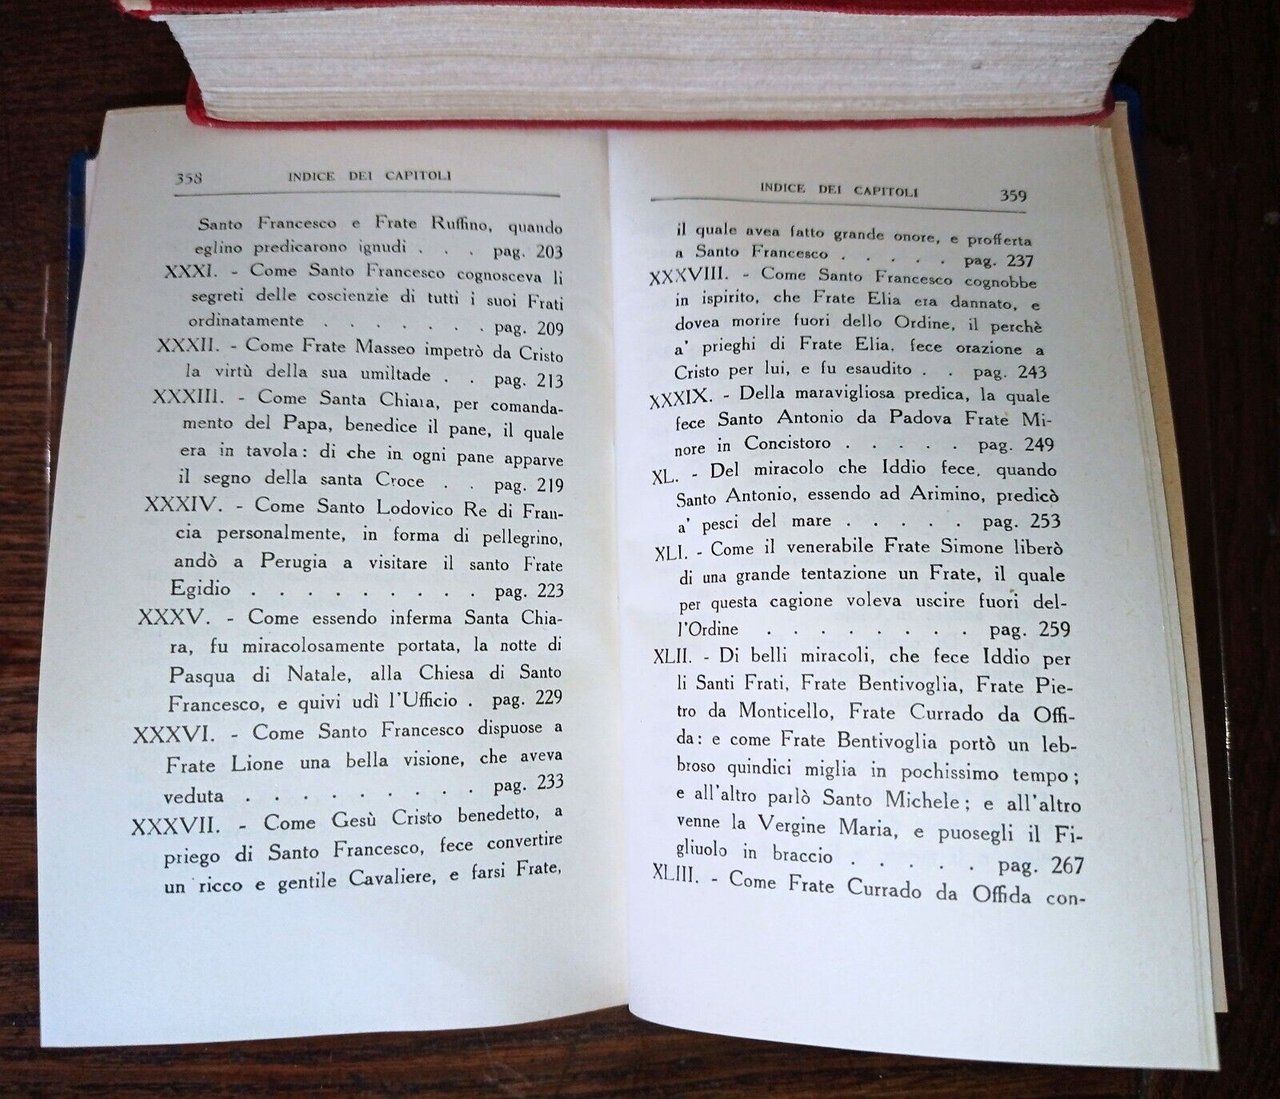 358 INDICE DEI CAPITOLI
Santo Francesco e Frate Ruffino, quando
eglino predicarono ignudi . . . pag. 203
XXXI. - Come Santo Francesco cognosceva li
segreti delle coscienzie di tutti i suoi Frati
ordinatamente . . . . . . . pag. 209
XXXII. - Come Frate Masseo impetrò da Cristo
la virtù della sua umiltade . . pag. 213
XXXIII. - Come Santa Chiara, per comanda-
mento del Papa, benedice il pane, il quale
era in tavola: di che in ogni pane apparve
il segno della santa Croce . . pag. 219
XXXIV. - Come Santo Lodovico Re di Fran-
cia personalmente, in forma di pellegrino,
andò a Perugia a visitare il santo Frate
Egidio . . . . . . . . . pag. 223
XXXV. - Come essendo inferma Santa Chia-
ra, fu miracolosamente portata, la notte di
Pasqua di Natale, alla Chiesa di Santo
Francesco, e quivi udì l'Ufficio . pag. 229
XXXVI. - Come Santo Francesco dispuose a
Frate Lione una bella visione, che aveva
veduta . . . . . . . . . pag. 233
XXXVII. - Come Gesù Cristo benedetto, a
priego di Santo Francesco, fece convertire
un ricco e gentile Cavaliere, e farsi Frate,
INDICE DEI CAPITOLI 359
il quale avea fatto grande onore, e profferta
a Santo Francesco . . . . . pag. 237
XXXVIII. - Come Santo Francesco cognobbe
in ispirito, che Frate Elia era dannato, e
dovea morire fuori dello Ordine, il perchè
a' prieghi di Frate Elia, fece orazione a
Cristo per lui, e fu esaudito . . pag. 243
XXXIX. - Della maravigliosa predica, la quale
fece Santo Antonio da Padova Frate Mi-
nore in Concistoro . . . . . pag. 249
XL. - Del miracolo che Iddio fece, quando
Santo Antonio, essendo ad Arimino, predicò
a' pesci del mare . . . . . pag. 253
XLI. - Come il venerabile Frate Simone liberò
di una grande tentazione un Frate, il quale
per questa cagione voleva uscire fuori del-
l'Ordine . . . . . . . . pag. 259
XLII. - Di belli miracoli, che fece Iddio per
li Santi Frati, Frate Bentivoglia, Frate Pie-
tro da Monticello, Frate Currado da Offi-
da: e come Frate Bentivoglia portò un leb-
broso quindici miglia in pochissimo tempo;
e all'altro parlò Santo Michele; e all'altro
venne la Vergine Maria, e puosegli il Fi-
gliuolo in braccio . . . . . pag. 267
XLIII. - Come Frate Currado da Offida con-